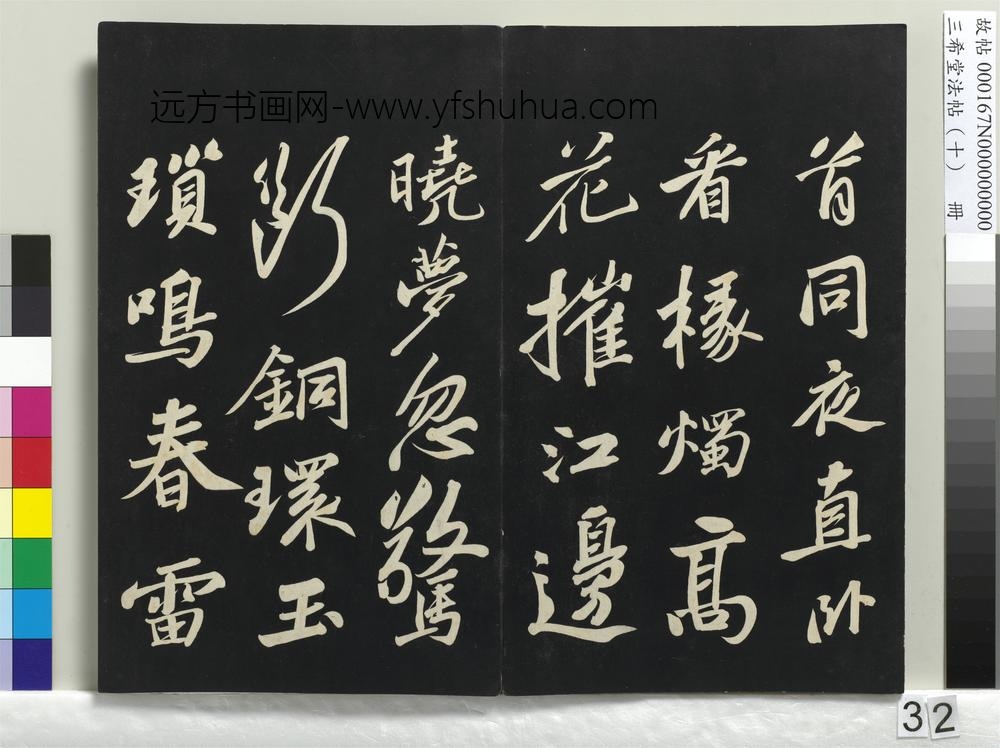 远方书画网-www.yfshuhua.com
首同夜直卧
看椽燭高
花摧江邊
曉夢忽驚
斷銅環玉
瑣鳴春雷
故帖 000167N000000000
三希堂法帖（十） 冊
32